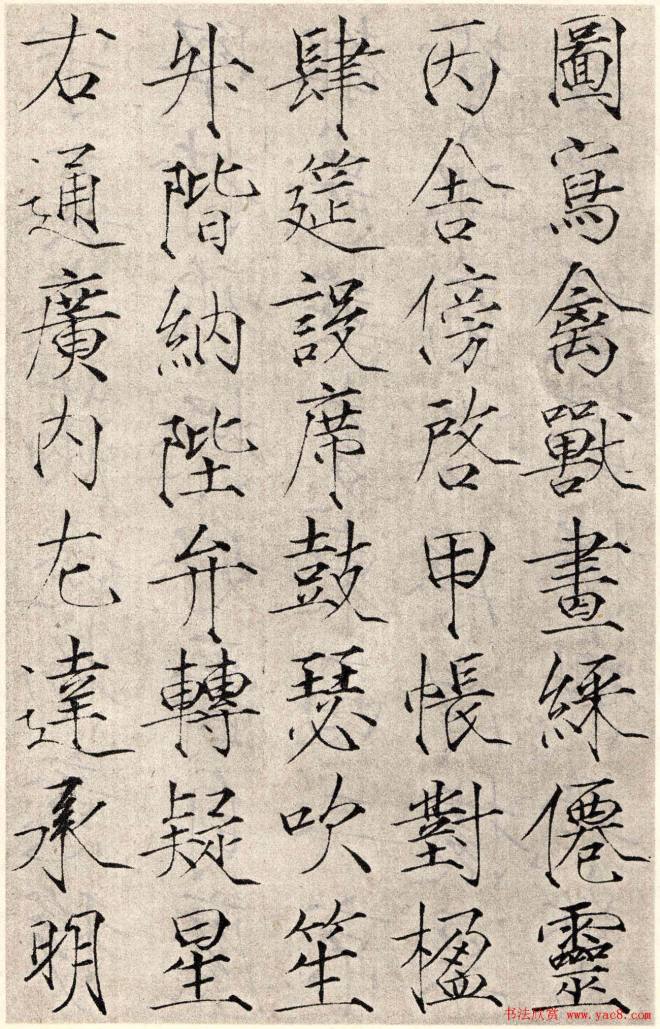 圖寫禽獸畫綵僊靈
丙舍傍啓甲帳對楹
肆筵設席鼓瑟吹笙
升階納陛弁轉疑星
右通廣內左達承明
书法欣赏 www.yac8.com